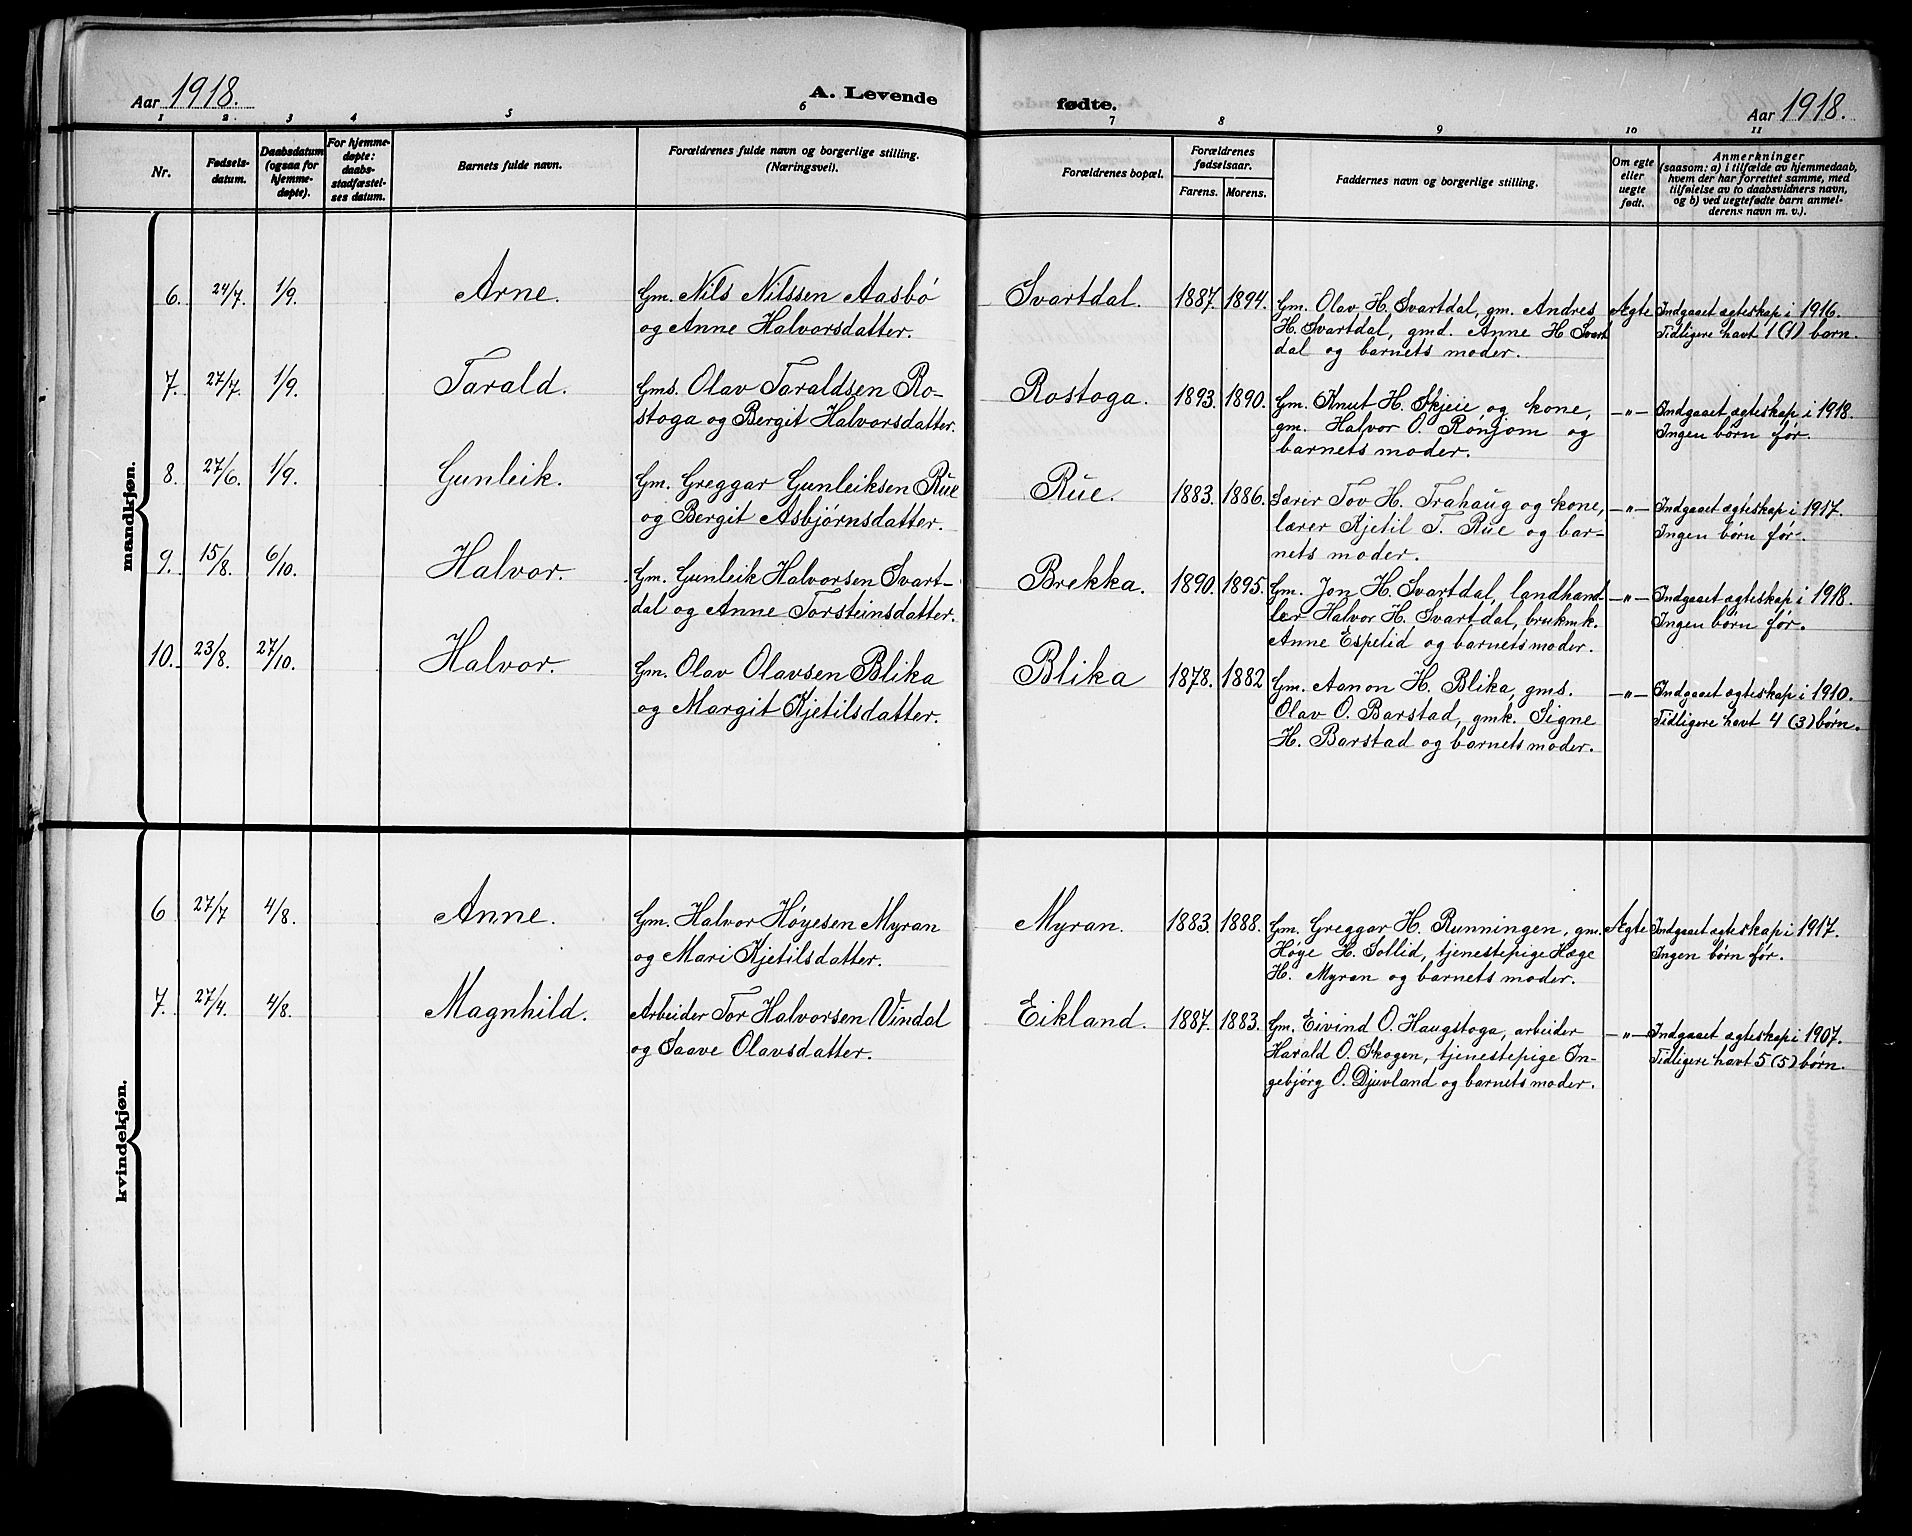 Aar 1918.
A. Levende
fødte.
Aar 1918.
1 2 3 4 5 6 7 8 9 10 11
Nr.
Fødsels-
datum.
Daabsdatum
(ogsaa for
hjemme-
døpte).
For hjemme-
døpte:
daabs-
stadfæstel-
ses datum.
Barnets fulde navn.
Forældrenes fulde navn og borgerlige stilling.
(Næringsvei).
Forældrenes bopæl.
Forældrenes
fødselsaar.
Farens. Morens.
Faddernes navn og borgerlige stilling.
Om egte
eller
uegte
født.
Anmerkninger
(saasom: a) i tilfælde av hjemmedaab,
hvem der har forrettet samme, med
tilføielse av to daabsvidners navn,
og b) ved uegtefødte barn anmel-
derens navn m. v.).
mandkjøn.
6. 24/7. 1/9. Arne. Gm. Nils Nilssen Aasbö Svartdal. 1887. 1894. Gm. Olav H. Svartdal, gm. Andres Ægte Indgaaet egteskap i 1916.
og Anne Halvorsdatter. H. Svartdal, gmd. Anne H Svart Tidligere havt 1 (1) barn.
dal og barnets moder.
7. 27/7. 1/9. Tarald. Gms. Olav Taraldsen Ro- Rostoga. 1893. 1890. Gm. Knut H. Skjeie og kone, —„— Indgaaet egteskap i 1918.
stoga og Bergit Halvorsdatter. gm. Halvor O. Rönjom og Ingen börn för.
barnets moder.
8. 27/6. 1/9. Gunleik. Gm. Greggar Gunleiksen Rue Rue. 1883. 1886. Lærer Tov H. Trahaug og kone, —„— Indgaaet egteskap i 1917.
og Bergit Asbjörnsdatter. lærer Kjetil T. Rue og bar- Ingen börn för.
nets moder.
9. 15/8. 6/10. Halvor. Gm. Gunleik Halvorsen Svart- Brekka. 1890. 1895. Gm. Jon H. Svartdal, landhand —„— Indgaaet egteskap i 1918.
dal og Anne Torsteinsdatter. ler Halvor H. Svartdal, brukmk. Ingen börn för.
Anne Espelid og barnets moder.
10. 23/8. 27/10. Halvor. Gm. Olav Olavsen Blika Blika 1878. 1882 Gm. Aanon H. Blika, gms. —„— Indgaaet egteskap i 1910.
og Margit Kjetilsdatter. Olav O. Barstad, gmk. Signe Tidligere havt 4 (3) börn.
H. Barstad og barnets moder.
kvindekjøn.
6 27/7 4/8. Anne. Gm. Halvor Höyesen Myran Myran. 1883. 1888. Gm. Greggar H. Runningen, gm. Ægte Indgaaet egteskap i 1917.
og Mari Kjetilsdatter. Höye H. Sollid, tjenestepige Hæge Ingen börn för.
H. Myran og barnets moder.
7. 27/4. 4/8. Magnhild. Arbeider Tor Halvorsen Vindal Eikland. 1887. 1883. Gm. Eivind O. Haugstoga, arbeider —„— Indgaaet egteskap i 1907.
og Saave Olavsdatter. Harald O. Skogen, tjenestepige In- Tidligere havt 5 (5) börn.
gebjörg O. Djuvland og barnets moder.